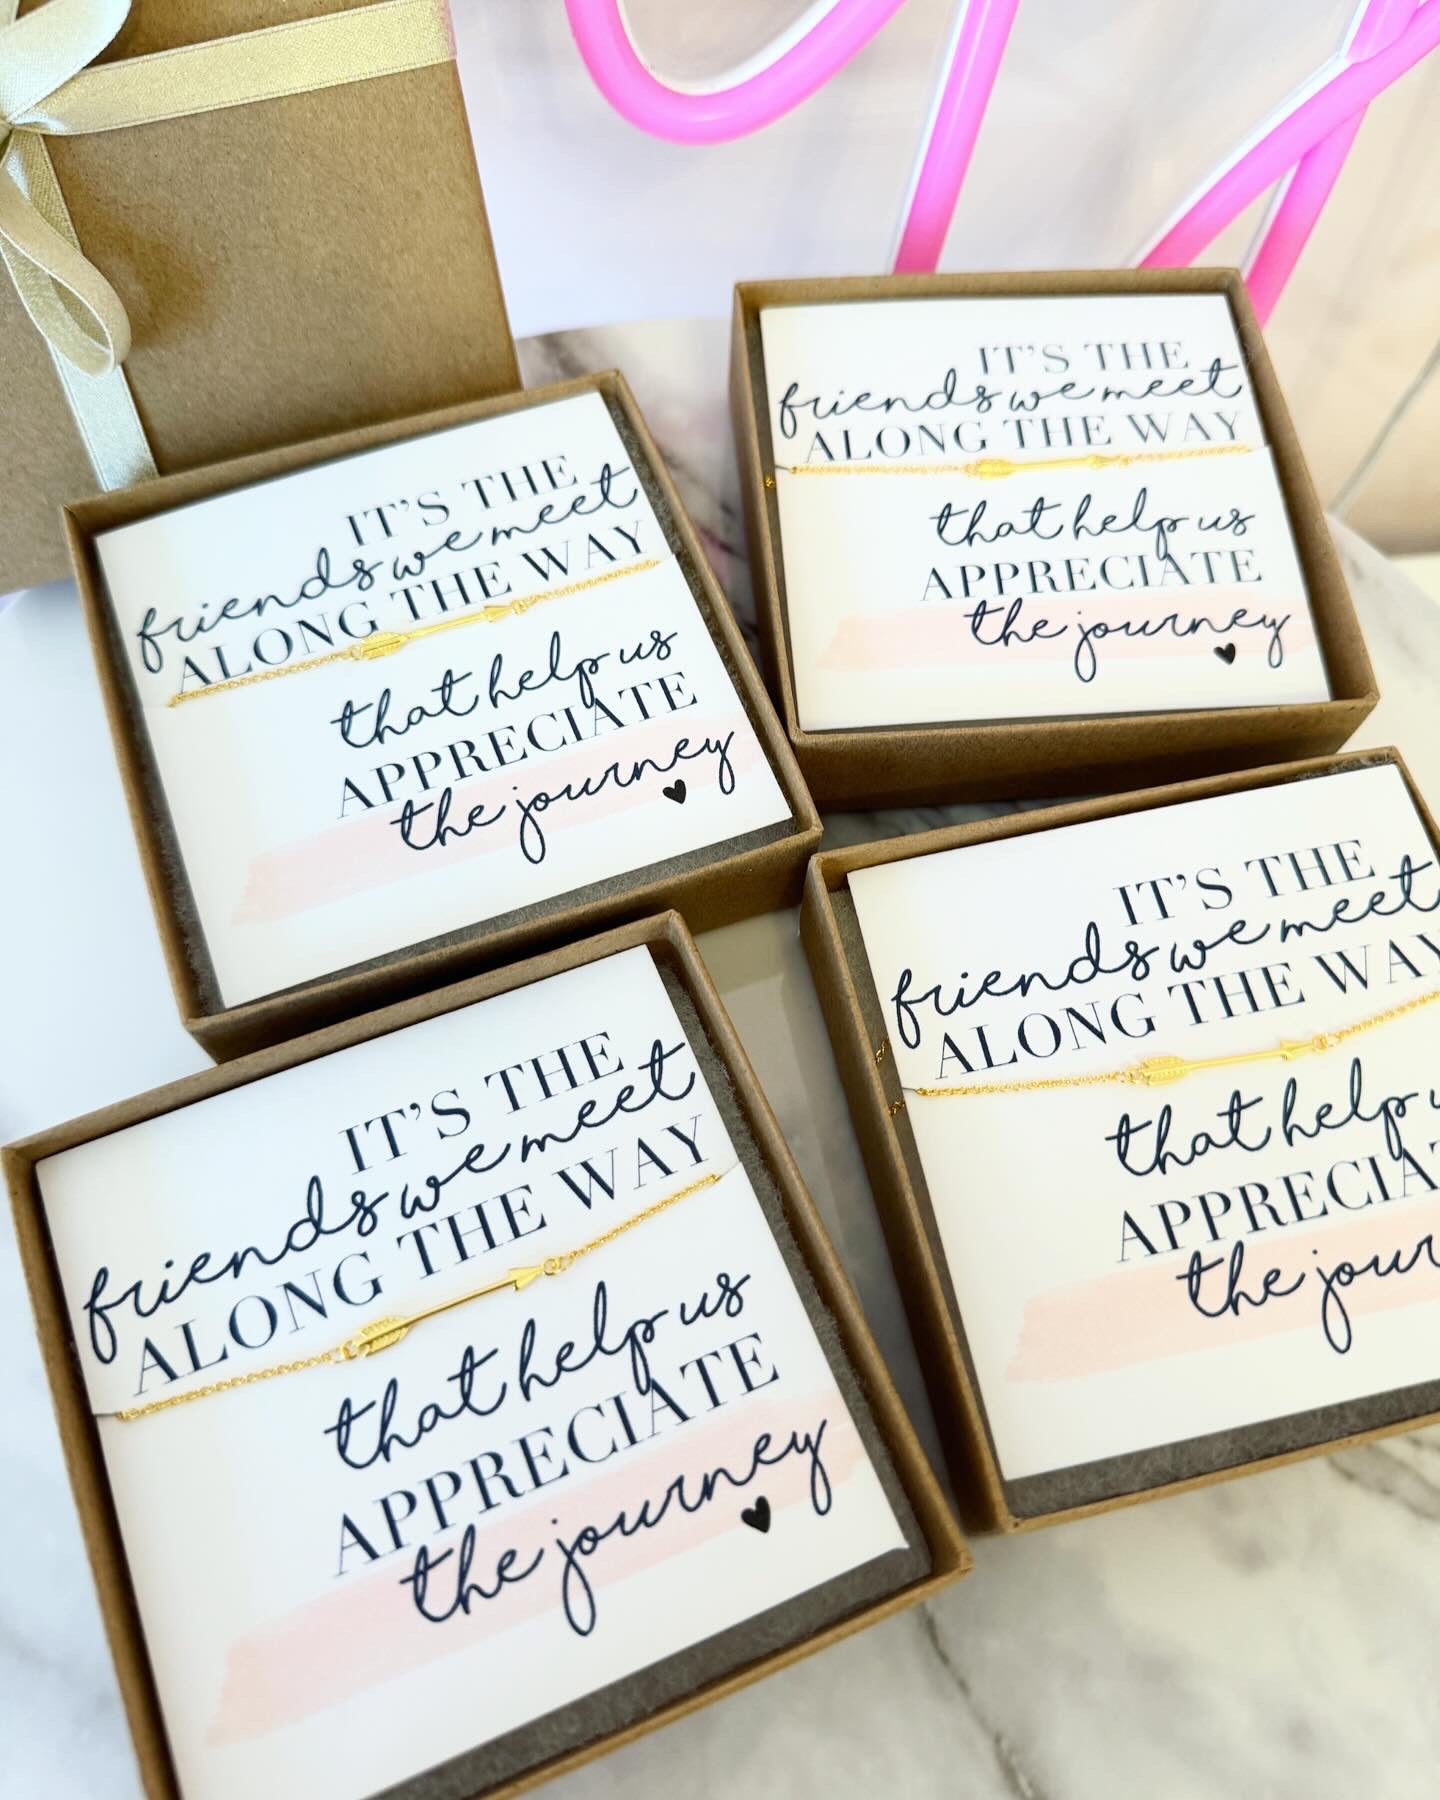 IT'S THE
friends we meet
ALONG THE WAY
that help us
APPRECIATE
the journey
IT'S THE
friends we meet
ALONG THE WAY
that help us
APPRECIATE
the journey
IT'S THE
friends we meet
ALONG THE WAY
that help us
APPRECIATE
the journey
IT'S THE
friends we meet
ALONG THE WAY
that help u
APPRECIA
the jour